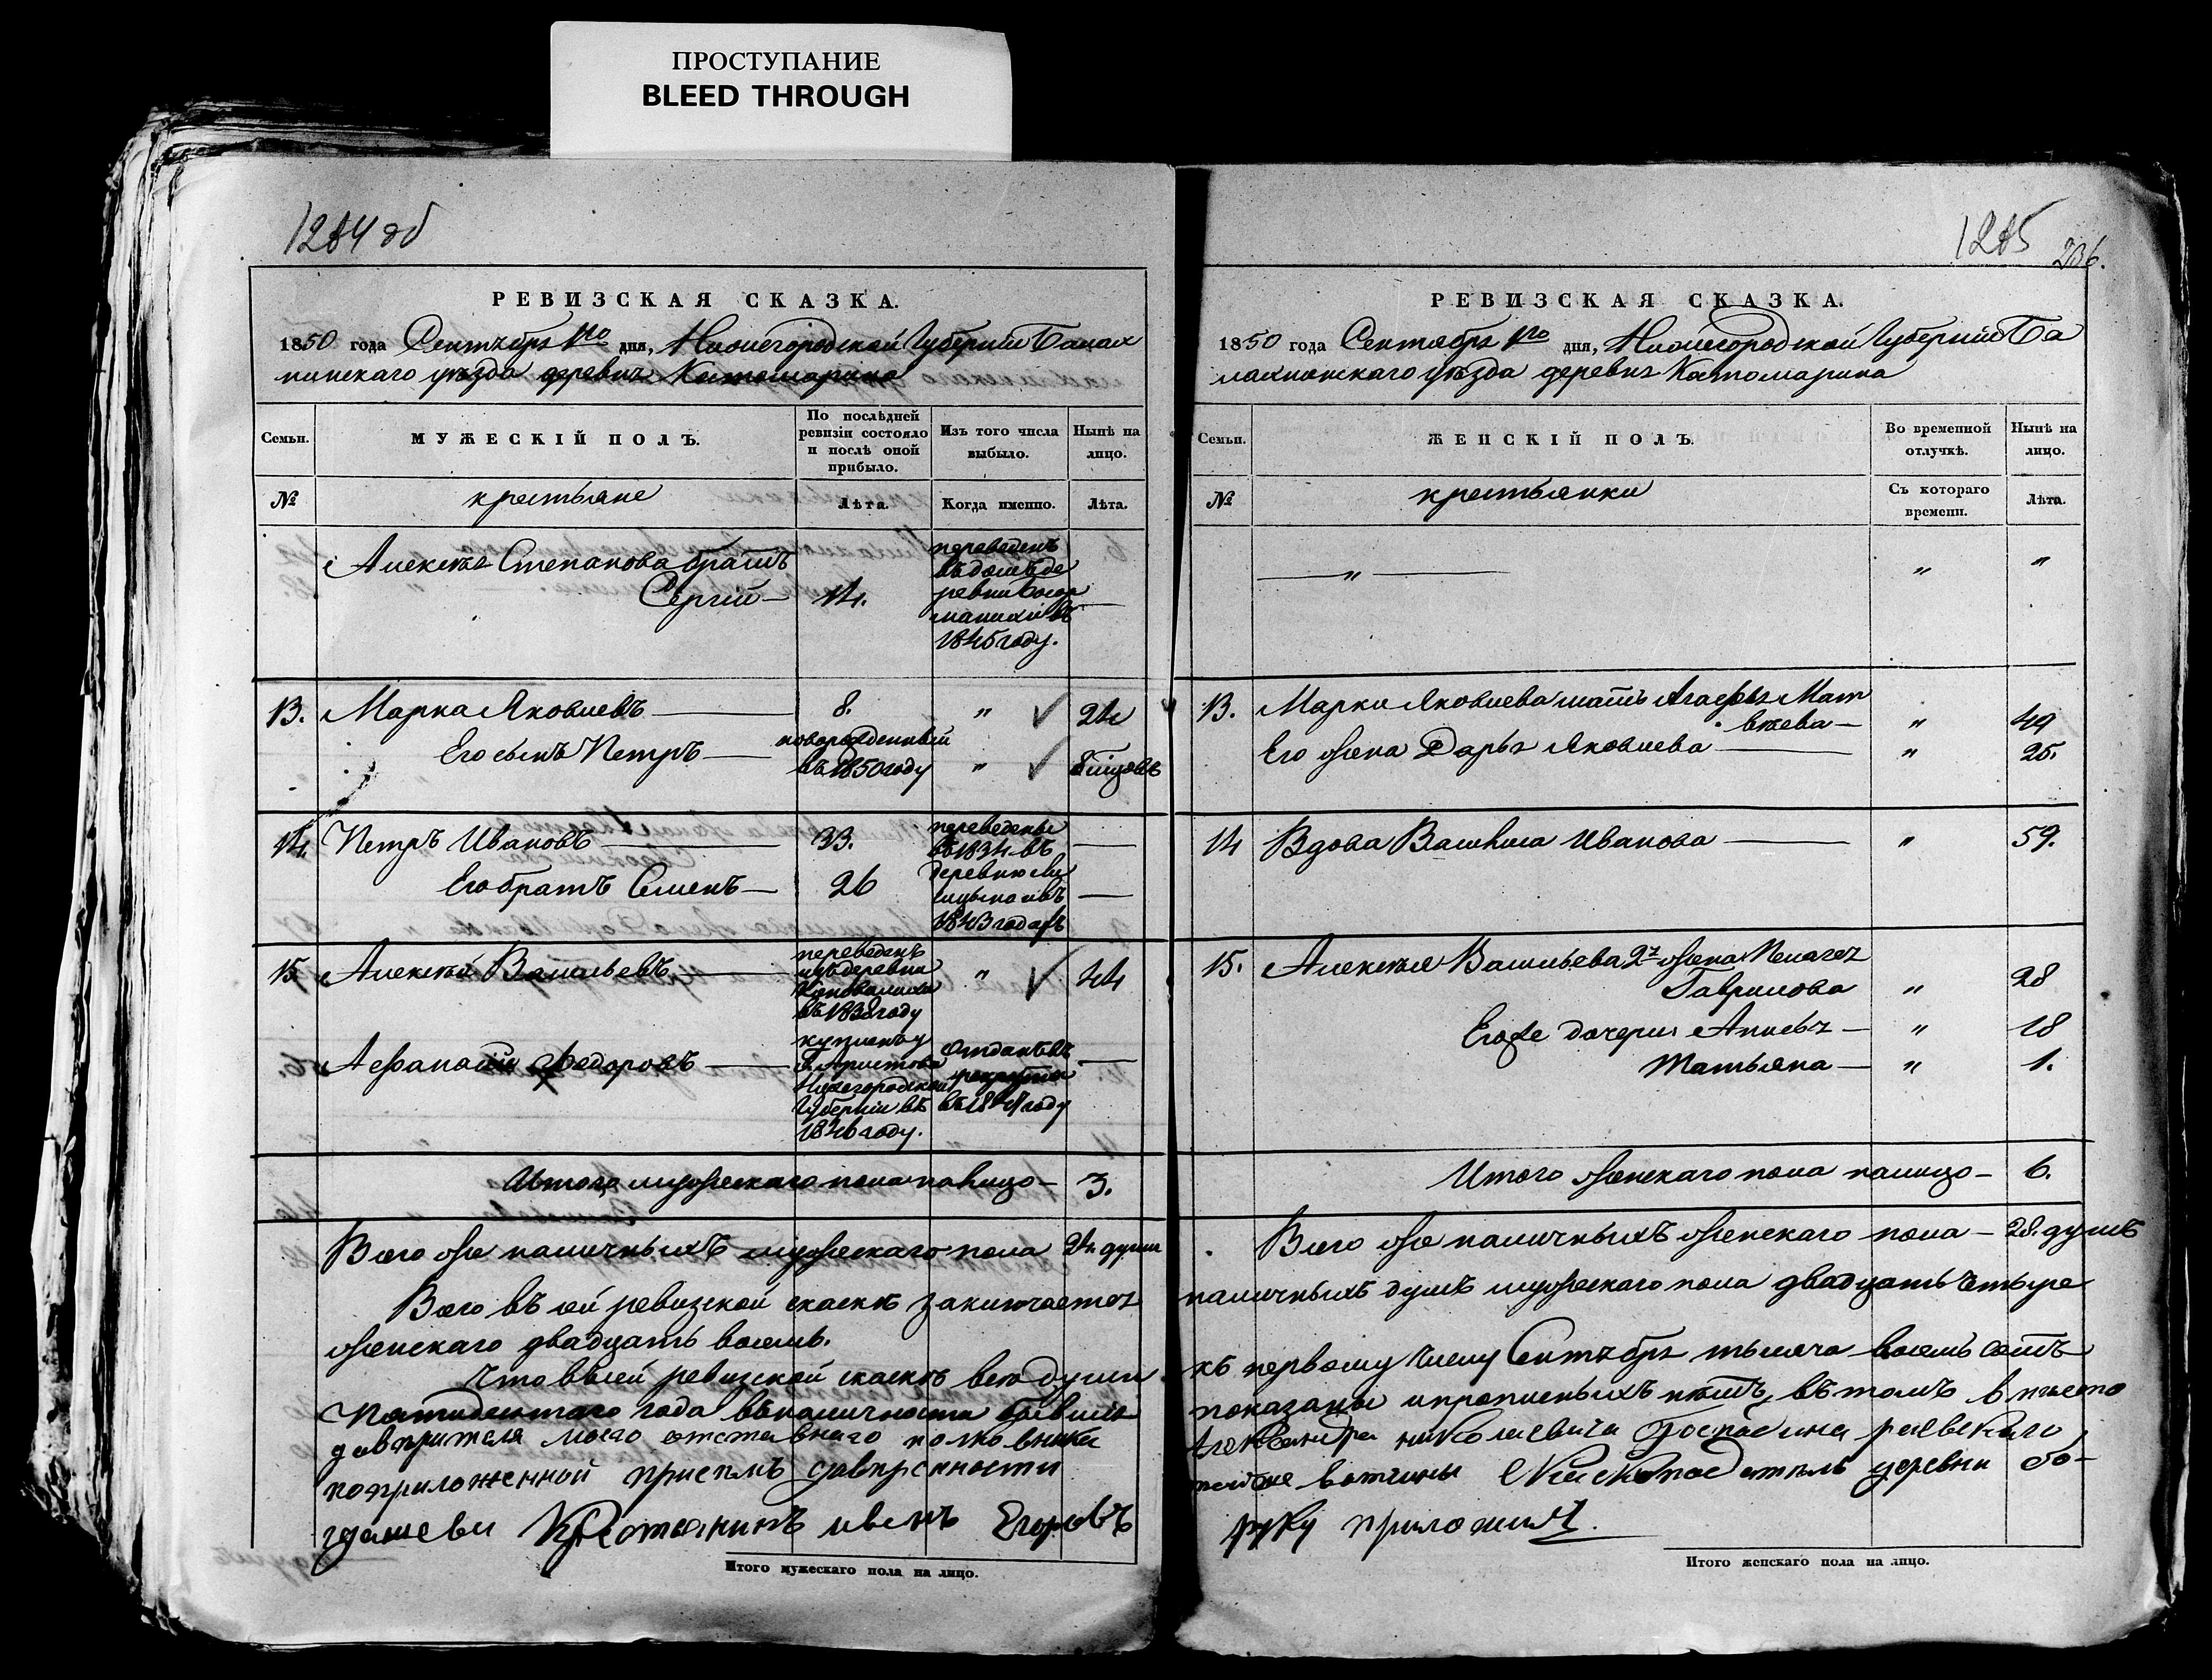 ПРОСТУПАНИЕ
BLEED THROUGH
1284 об
РЕВИЗСКАЯ СКАЗКА.
1850 года Сентября 1го дня, Нижегородской Губернии Балах
нинскаго уѣзда деревни
Семьи.
МУЖЕСКІЙ ПОЛЪ.
По послѣдней ревизіи состояло и послѣ оной прибыло.
Изъ того числа выбыло.
Нынѣ на лицо.
№
крестьяне
Лѣта.
Когда именно.
Лѣта.
Алексѣя Степанова братъ
Сергій — 14.
переведенъ
въ
1845 году.
13. Марка Яковлевъ — 8. " 24
Его сынъ Петръ — новорожденный
въ 1850 году "
14. Петръ Ивановъ — 33. —
Его братъ Семенъ — 26 —
переведены
въ 1834 въ
деревню
1843 годахъ
15 Алексѣй Васильевъ — " 44
переведенъ
изъ деревни
въ 1838 году
Афанасій Федоровъ — —
купленъ у
Г.
Нижегородской
Губерніи въ
1846 году.
Отданъ въ
рекруты
въ 1848 году
Итого мужескаго пола налицо — 3.
Всего же наличныхъ мужескаго пола 24. души
Всего въ сей ревизской сказкѣ заключается
женскаго двадцать восемь.
Что въ сей ревизской сказкѣ всѣ души
Пятидесятаго года въ наличности бывшія
довѣрителя моего отставнаго полковника
по приложенной при семъ довѣренности
Крестьянинъ иванъ Егоровъ
Итого мужескаго пола на лицо.
1285
236.
РЕВИЗСКАЯ СКАЗКА.
1850 года Сентября 1го дня, Нижегородской Губерніи Ба
лахнинскаго уѣзда деревни
Семьи.
ЖЕНСКІЙ ПОЛЪ.
Во временной отлучкѣ.
Нынѣ на лицо.
№
крестьянки
Съ котораго времени.
Лѣта.
— " — " "
13. Марки Яковлева мать Агафья Мат
вѣева — " 49
Его жена Дарья Яковлева — " 25.
14 Вдова Василиса Иванова — " 59.
15. Алексѣя Васильева 2я жена Пелагея
Гаврилова " 28
Его же дочери — " 18
Татьяна — " 1.
Итого женскаго пола налицо — 6.
Всего же наличныхъ женскаго пола — 28. душъ
наличныхъ душъ мужескаго пола двадцать четыре
къ первому числу Сентября тысяча восемь сотъ
показаны и прописныхъ нѣтъ, въ томъ вмѣсто
Александра николаевича Господина
вотчины деревни бо-
руку приложилъ.
Итого женскаго пола на лицо.